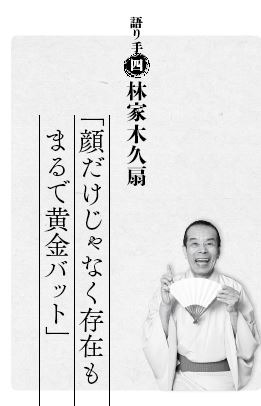 語り手 四 林家木久扇
「顔だけじゃなく存在も
まるで黄金バット」